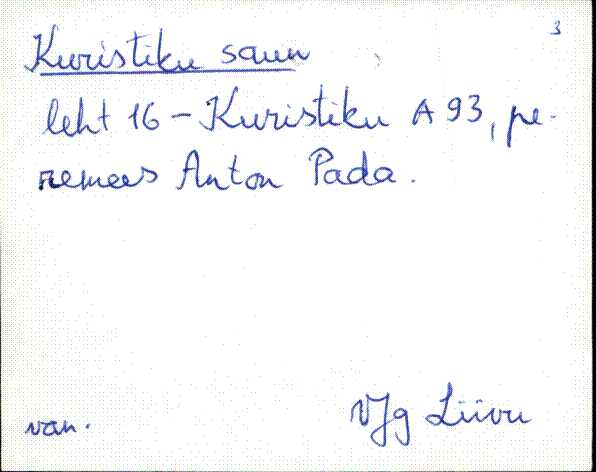 3
Kuristiku saun
leht 16 – Kuristiku A 93, pe-
remees Anton Pada.
van. VJg Liivu